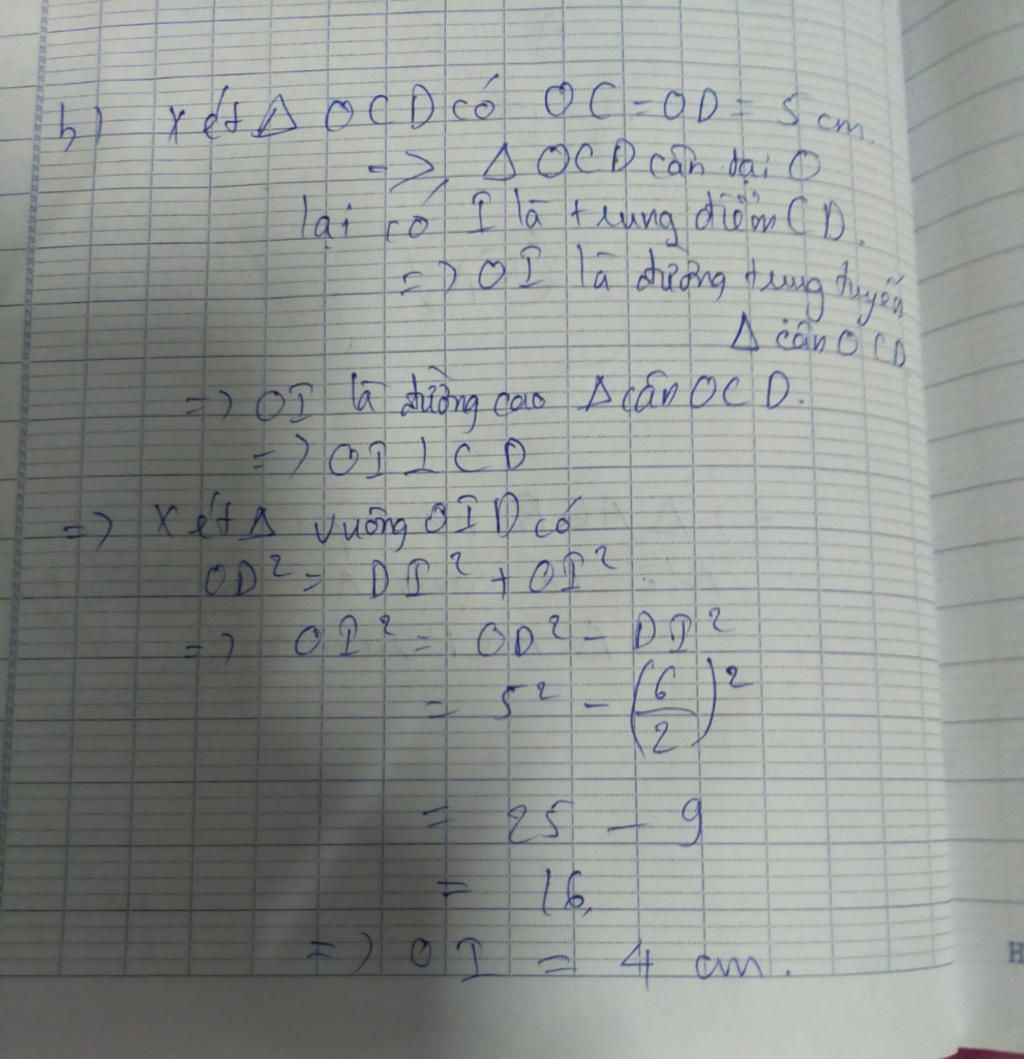 b) Xét Δ OCD có OC = OD = 5 cm.
=> Δ OCD cân tại O
lại có I là trung điểm CD.
=> OI là đường trung tuyến
Δ cân OCD
=> OI là đường cao Δ cân OCD.
=> OI ⊥ CD
=> Xét Δ vuông OID có
OD² = DI² + OI².
=> OI² = OD² - DI²
= 5² - (6/2)²
= 25 - 9
= 16.
=> OI = 4 cm.
H